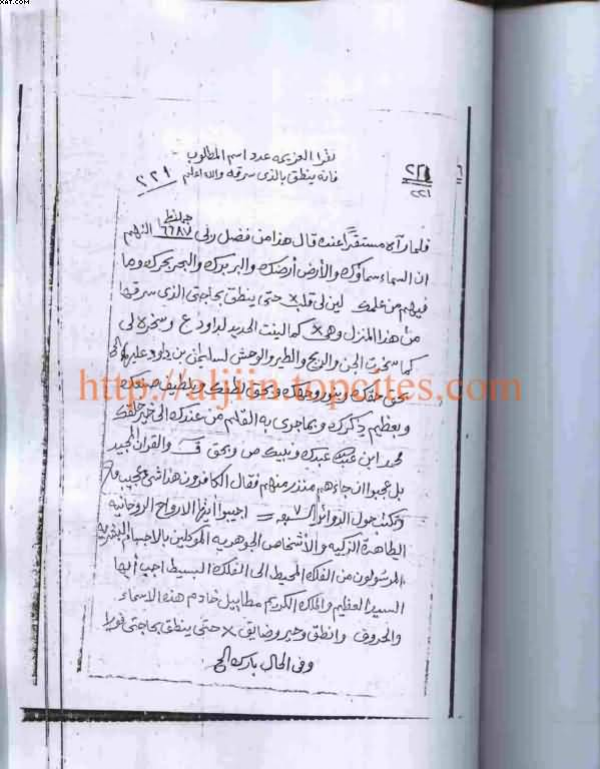 xat.com
نقرا العزيمه عدد اسم المطلوب
فانه ينطق بالذى سرقه والله اعلم ٢٢١
٢٢١
٢٢١
فلما رآه مستقرًا عنده قال هذا من فضل ربى ٦٦٨٧ اللهم
ان السماء سماؤك والأرض أرضك والبر برك والبحر بحرك وما
فيهم من علمك لين لى قلب × حتى ينطق بحاجتى الذى سرقها
من هذا المنزل وهى × كما لينت الحديد لداود ع وسخره لى
كما سخرت الجن والريح والطير والوحش لسليمان بن داود عليهما
بحق خلقك وبنور وجهك وبحق وبلطيف صنعك
http://aljiin.topcites.com
وبعظيم ذكرك وبما جرى به القلم من عندك الى خير خلقك
محمد ابن عبدك ونبيك ص وبحق ق والقران المجيد
بل عجبوا ان جاءهم منذر منهم فقال الكافرون هذا شئ عجيب
وتكتب حول الدوائر السبعه ٧ اجيبوا ايتها الارواح الروحانيه
الطاهرة الزكيه والأشخاص الجوهريه الموكلين بالاجسام البشريه
المرسولون من الفلك المحيط الى الفلك البسيط اجب أيها
السيد العظيم والملك الكريم خادم هذه الاسماء
والحروف وانطق وخبر × حتى ينطق بحاجتى فورا
وفى الحال بارك الخ